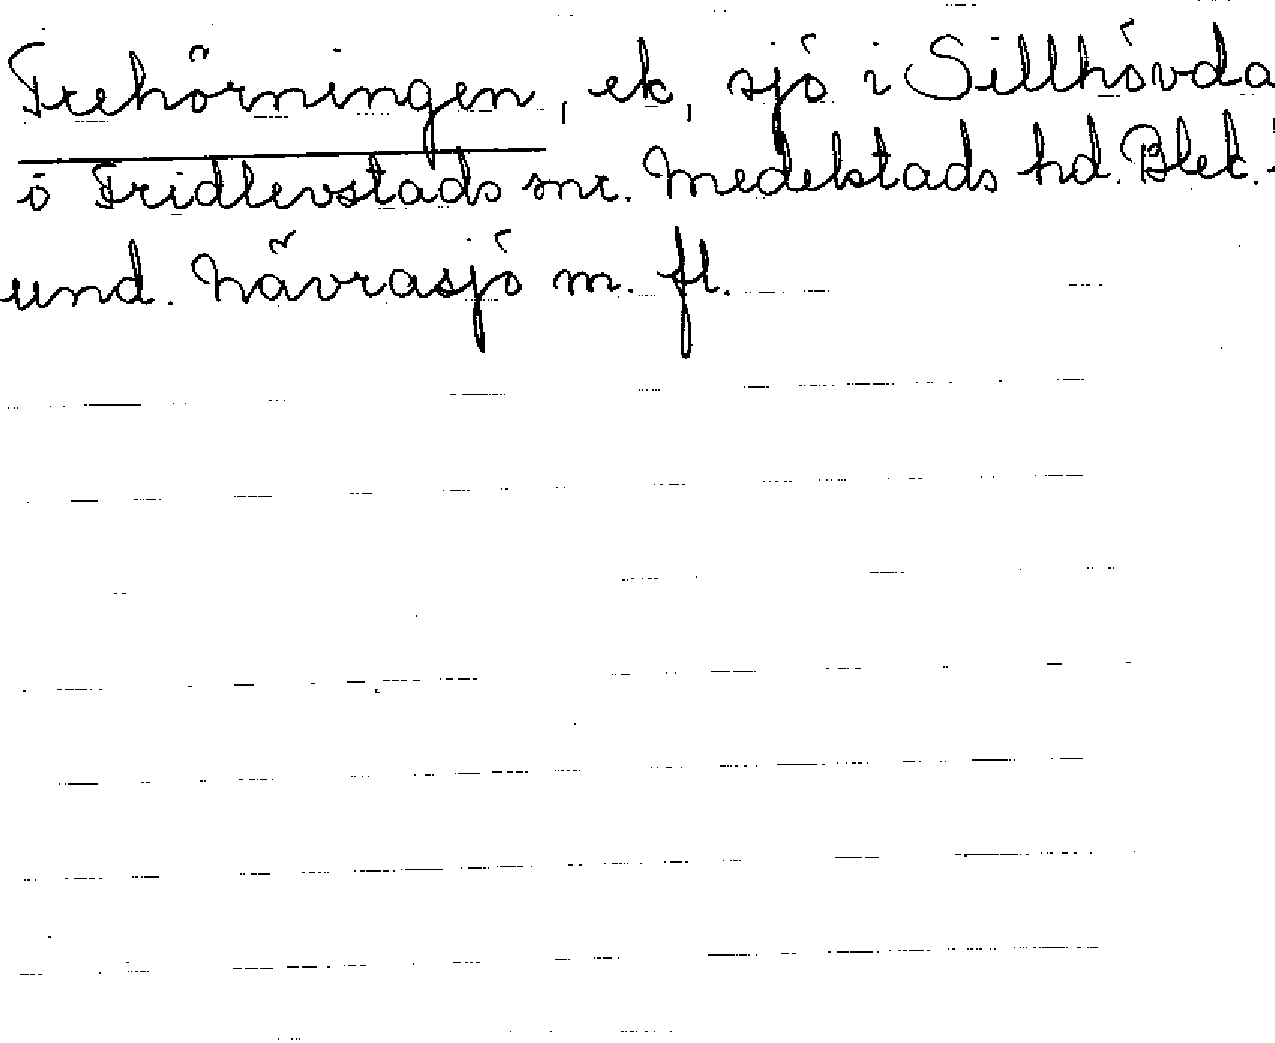 Trehörningen, ek, sjö i Sillhövda
ö Fridlevstads snr. Medelstads hd. Blek.
und. Nävrasjö m. fl.